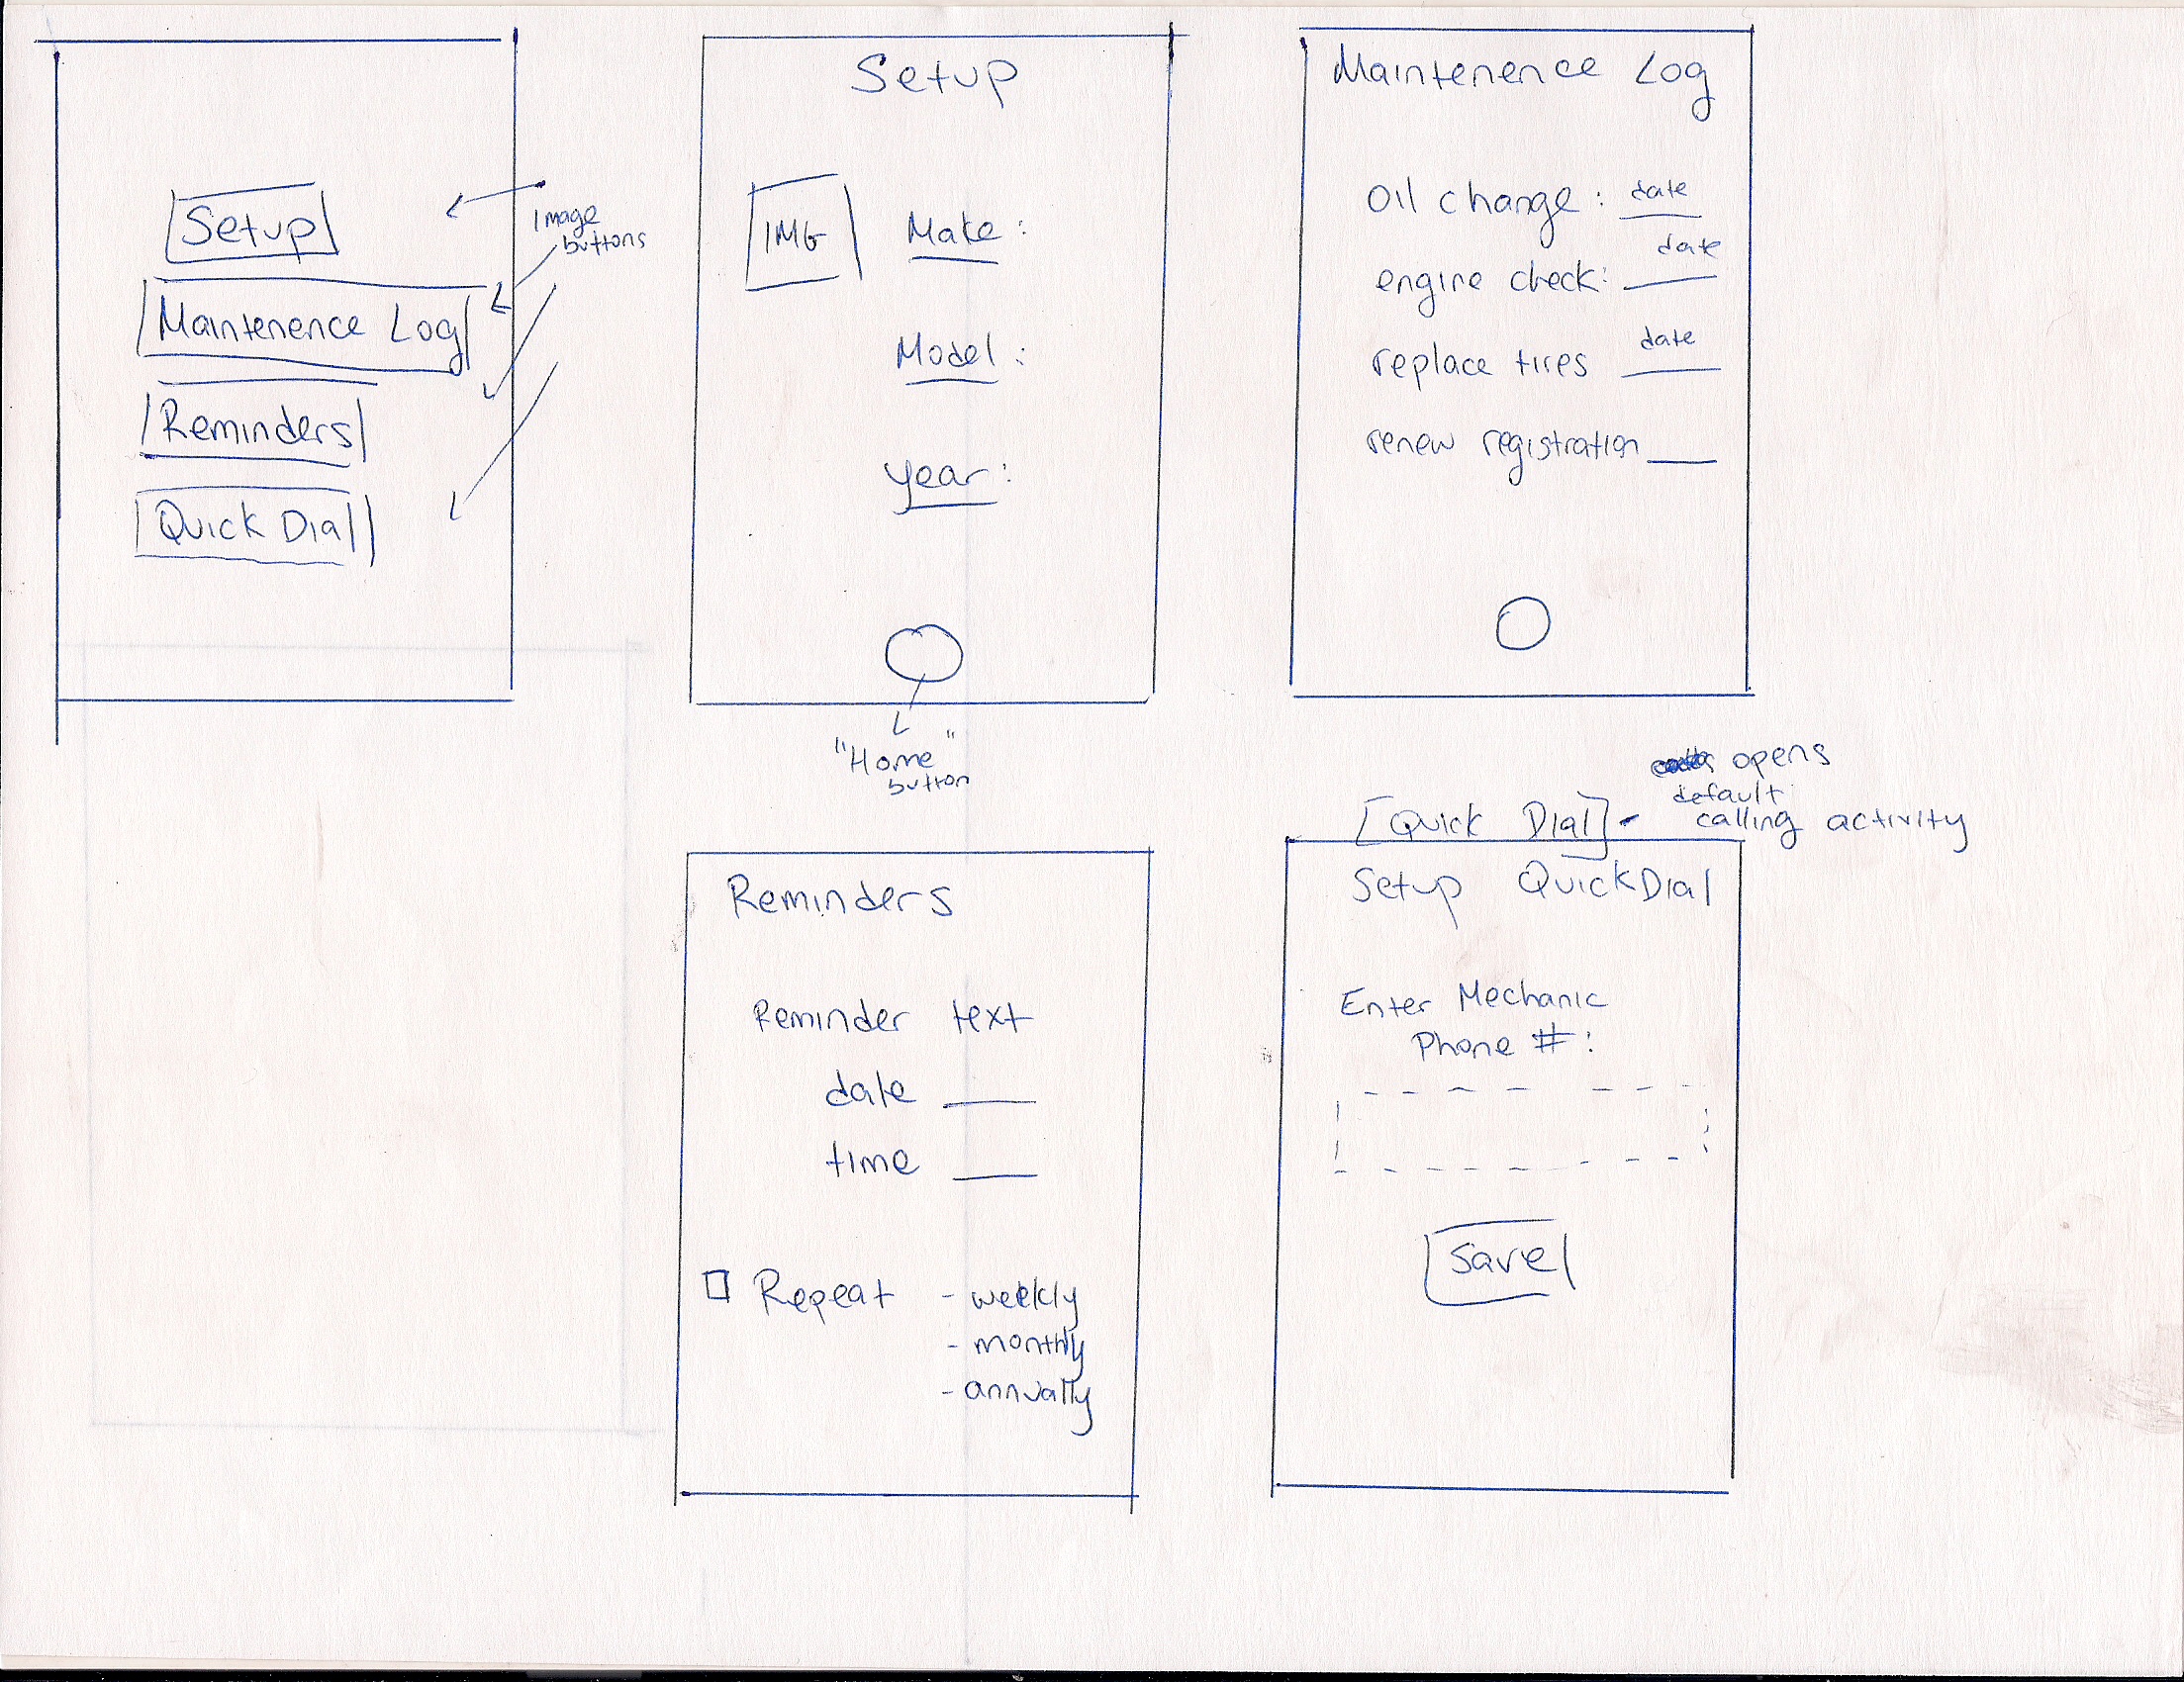 Setup
Maintenence Log
Reminders
Quick Dial
Image
buttons
Setup
IMG
Make:
Model:
year:
"Home"
button
Maintenence Log
Oil change: date
engine check: date
replace tires date
renew registration
Reminders
Reminder text
date
time
Repeat - weekly
- monthly
- annually
Quick Dial - opens
default
calling activity
Setup QuickDial
Enter Mechanic
Phone #:
Save